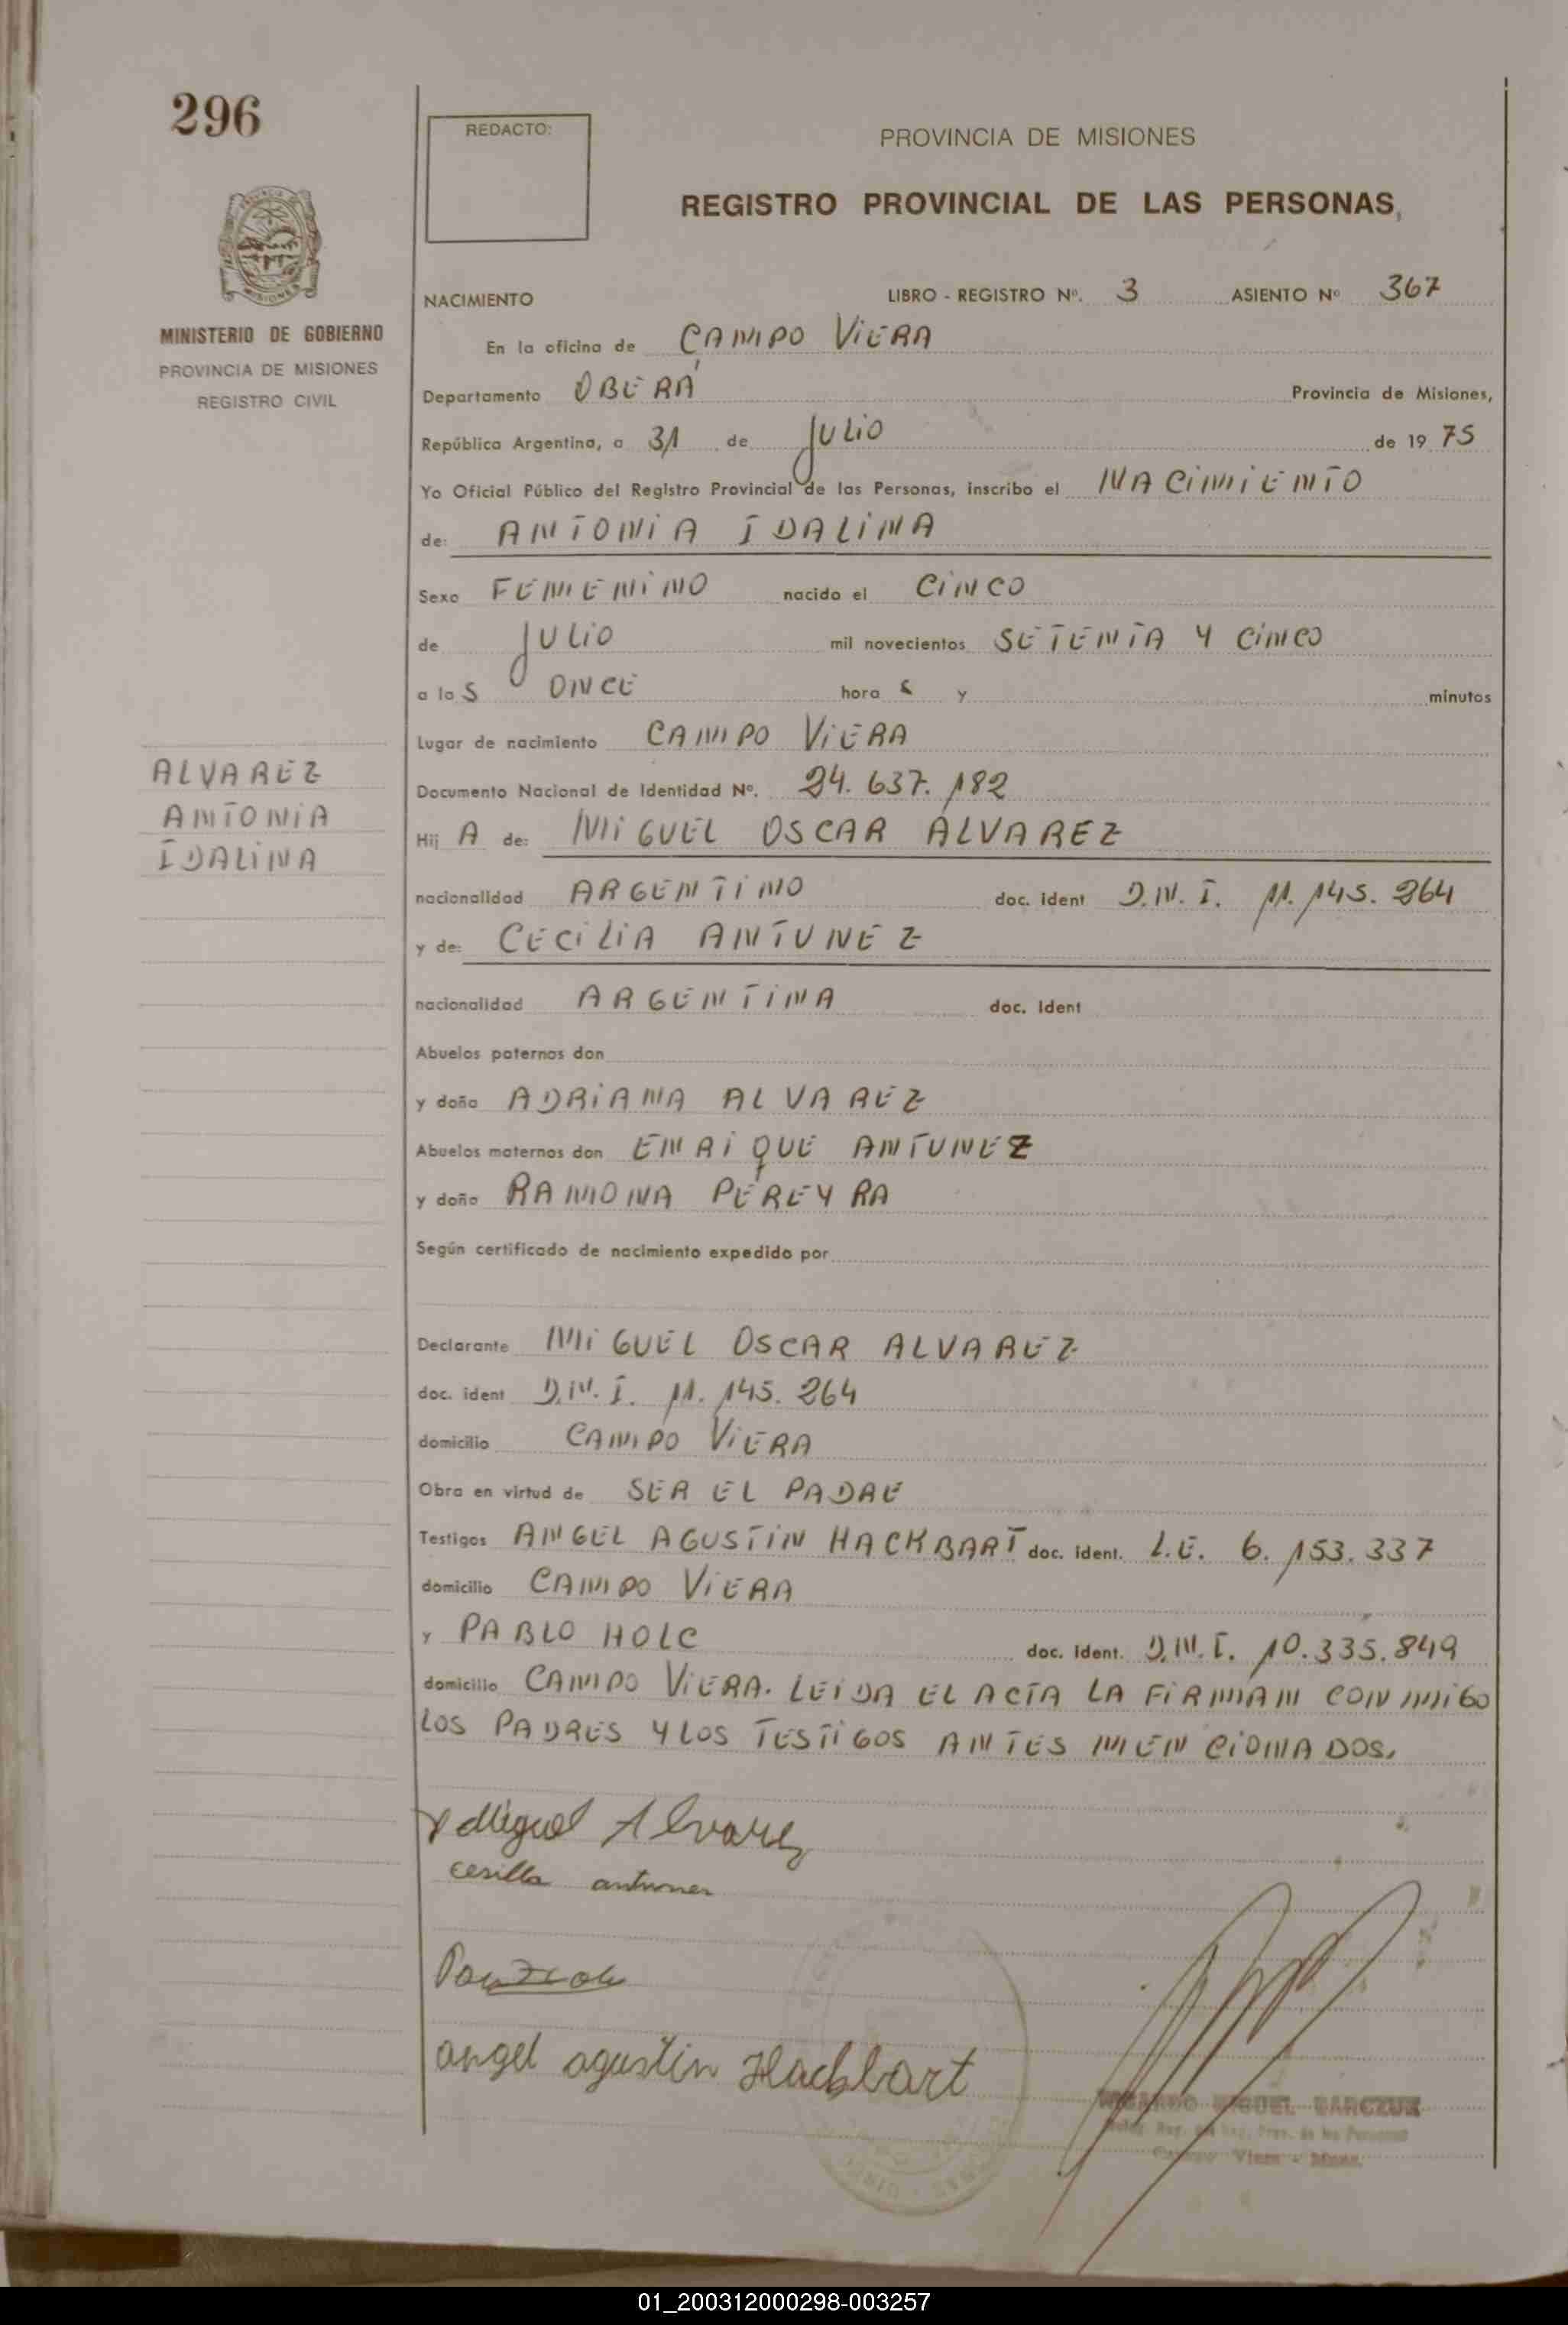 296
REDACTO:
PROVINCIA DE MISIONES
REGISTRO PROVINCIAL DE LAS PERSONAS,
MINISTERIO DE GOBIERNO
PROVINCIA DE MISIONES
REGISTRO CIVIL
NACIMIENTO LIBRO - REGISTRO Nº. 3 ASIENTO Nº 367
En la oficina de CAMPO VIERA
Departamento OBERÁ Provincia de Misiones,
República Argentina, a 31 de JULIO de 19 75
Yo Oficial Público del Registro Provincial de las Personas, inscribo el NACIMIENTO
de: ANTONIA IDALINA
Sexo FEMENINO nacido el CINCO
de JULIO mil novecientos SETENTA Y CINCO
a la S ONCE hora S y minutos
Lugar de nacimiento CAMPO VIERA
ALVAREZ
ANTONIA
IDALINA
Documento Nacional de Identidad Nº. 24.637.182
Hij A de: MIGUEL OSCAR ALVAREZ
nacionalidad ARGENTINO doc. ident D.N.I. 11.145.264
y de: CECILIA ANTUNEZ
nacionalidad ARGENTINA doc. Ident
Abuelos paternos don
y doña ADRIANA ALVAREZ
Abuelos maternos don ENRIQUE ANTUNEZ
y doña RAMONA PEREYRA
Según certificado de nacimiento expedido por
Declarante MIGUEL OSCAR ALVAREZ
doc. ident D.N.I. 11.145.264
domicilio CAMPO VIERA
Obra en virtud de SER EL PADRE
Testigos ANGEL AGUSTIN HACKBART doc. ident. L.E. 6.153.337
domicilio CAMPO VIERA
y PABLO HOLC doc. ident. D.N.I. 10.335.849
domicilio CAMPO VIERA. LEIDA EL ACTA LA FIRMAN CONMIGO
LOS PADRES Y LOS TESTIGOS ANTES MENCIONADOS.
Miguel Alvarez
cesilla antunez
angel agustin Hackbart
MIGUEL BARCZUK
Campo Viera - Mnes.
01_200312000298-003257